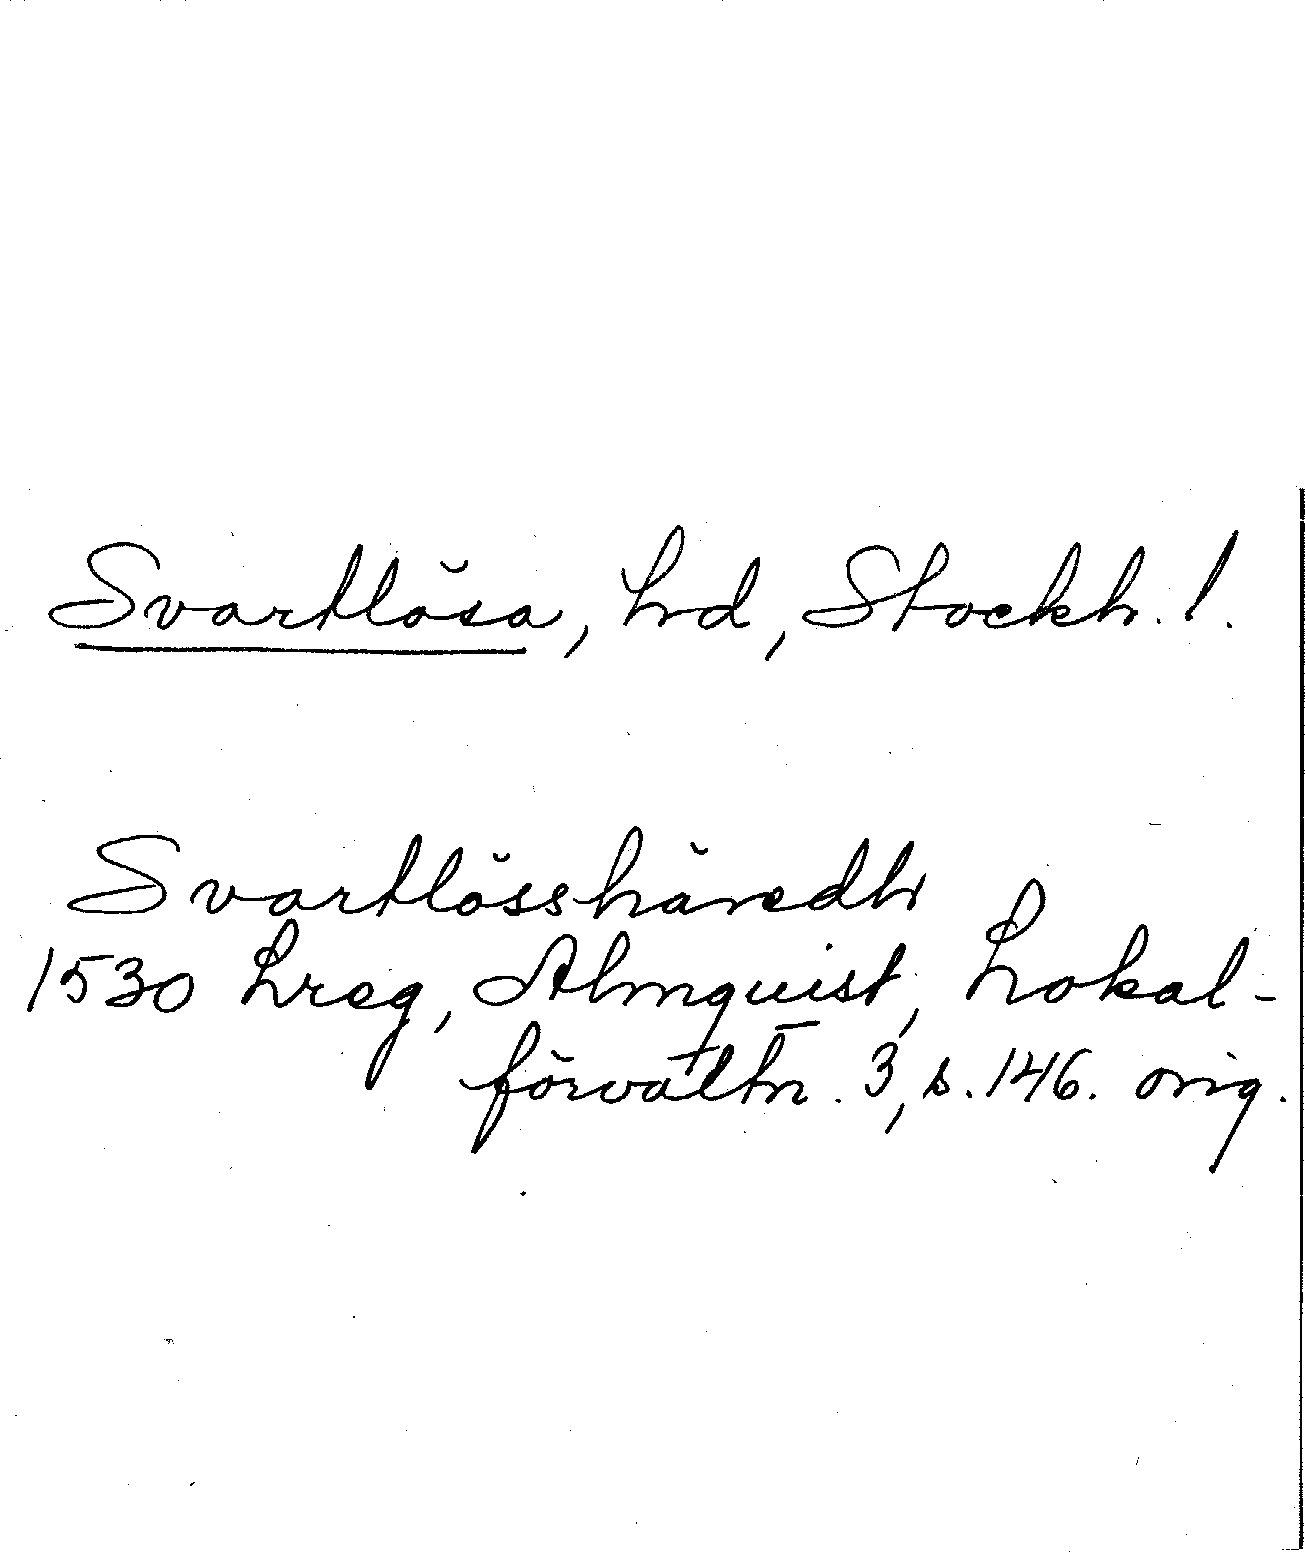 Svartlösa, hd, Stockh. l.
Svartlösshäredh
1530 Lreg, Almquist, Lokal-
förvaltn. 3, s. 146. orig.